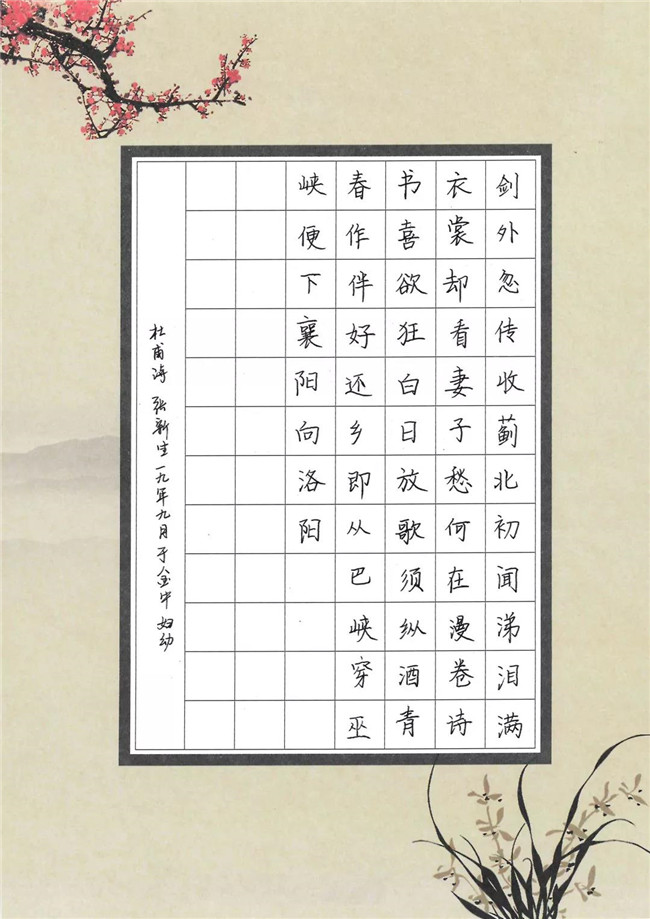 剑外忽传收蓟北初闻涕泪满
衣裳却看妻子愁何在漫卷诗
书喜欲狂白日放歌须纵酒青
春作伴好还乡即从巴峡穿巫
峡便下襄阳向洛阳
杜甫诗 张新生一九年九月于金中妇幼